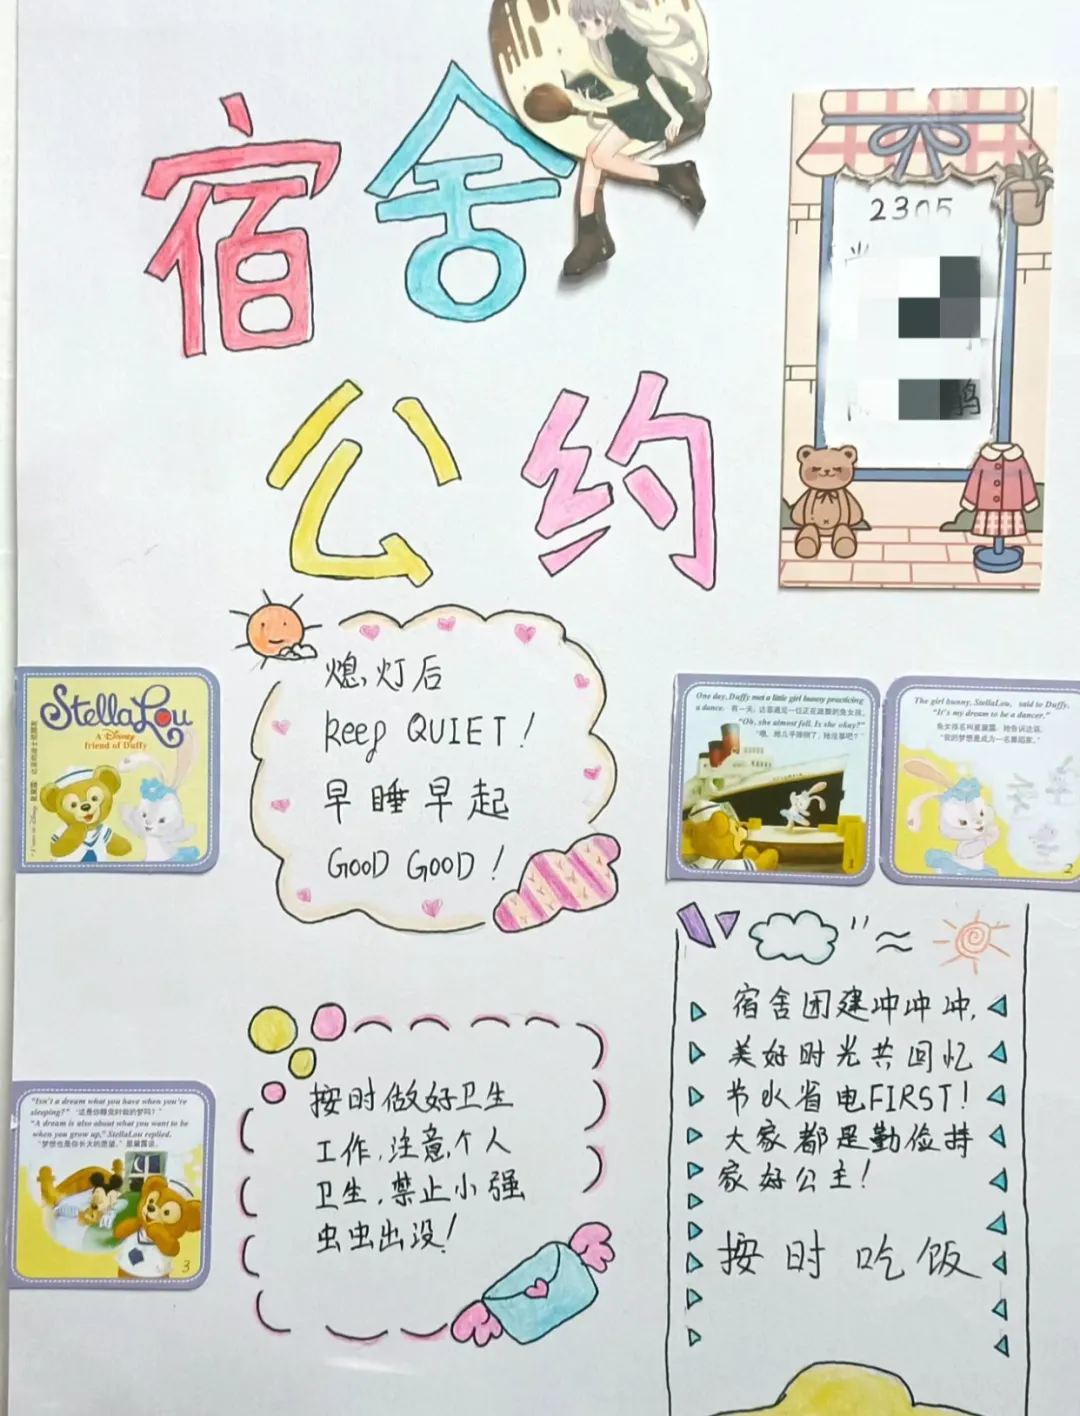 宿舍
公约
2305
鹃
熄灯后
keep QUIET!
早睡早起
GOOD GOOD!
StellaLou
A Disney
friend of Duffy
One day, Duffy met a little girl bunny practicing
a dance. 有一天，达菲遇见一位正在跳舞的兔女孩。
"Oh, she almost fell. Is she okay?"
"哦，她几乎摔倒了，她没事吧？"
1
The girl bunny, StellaLou, said to Duffy,
"It's my dream to be a dancer."
兔女孩名叫星黛露，她告诉达菲，
"我的梦想是成为一名舞蹈家。"
2
宿舍团建冲冲冲，
美好时光共回忆
节水省电FIRST!
大家都是勤俭持
家好公主!
按时吃饭
按时做好卫生
工作，注意个人
卫生，禁止小强
虫虫出没!
"Isn't a dream what you have when you're
sleeping?" "这是你睡觉时做的梦吗？"
"A dream is also about what you want to be
when you grow up," StellaLou replied.
"梦想也是你长大的愿望。" 星黛露说。
3